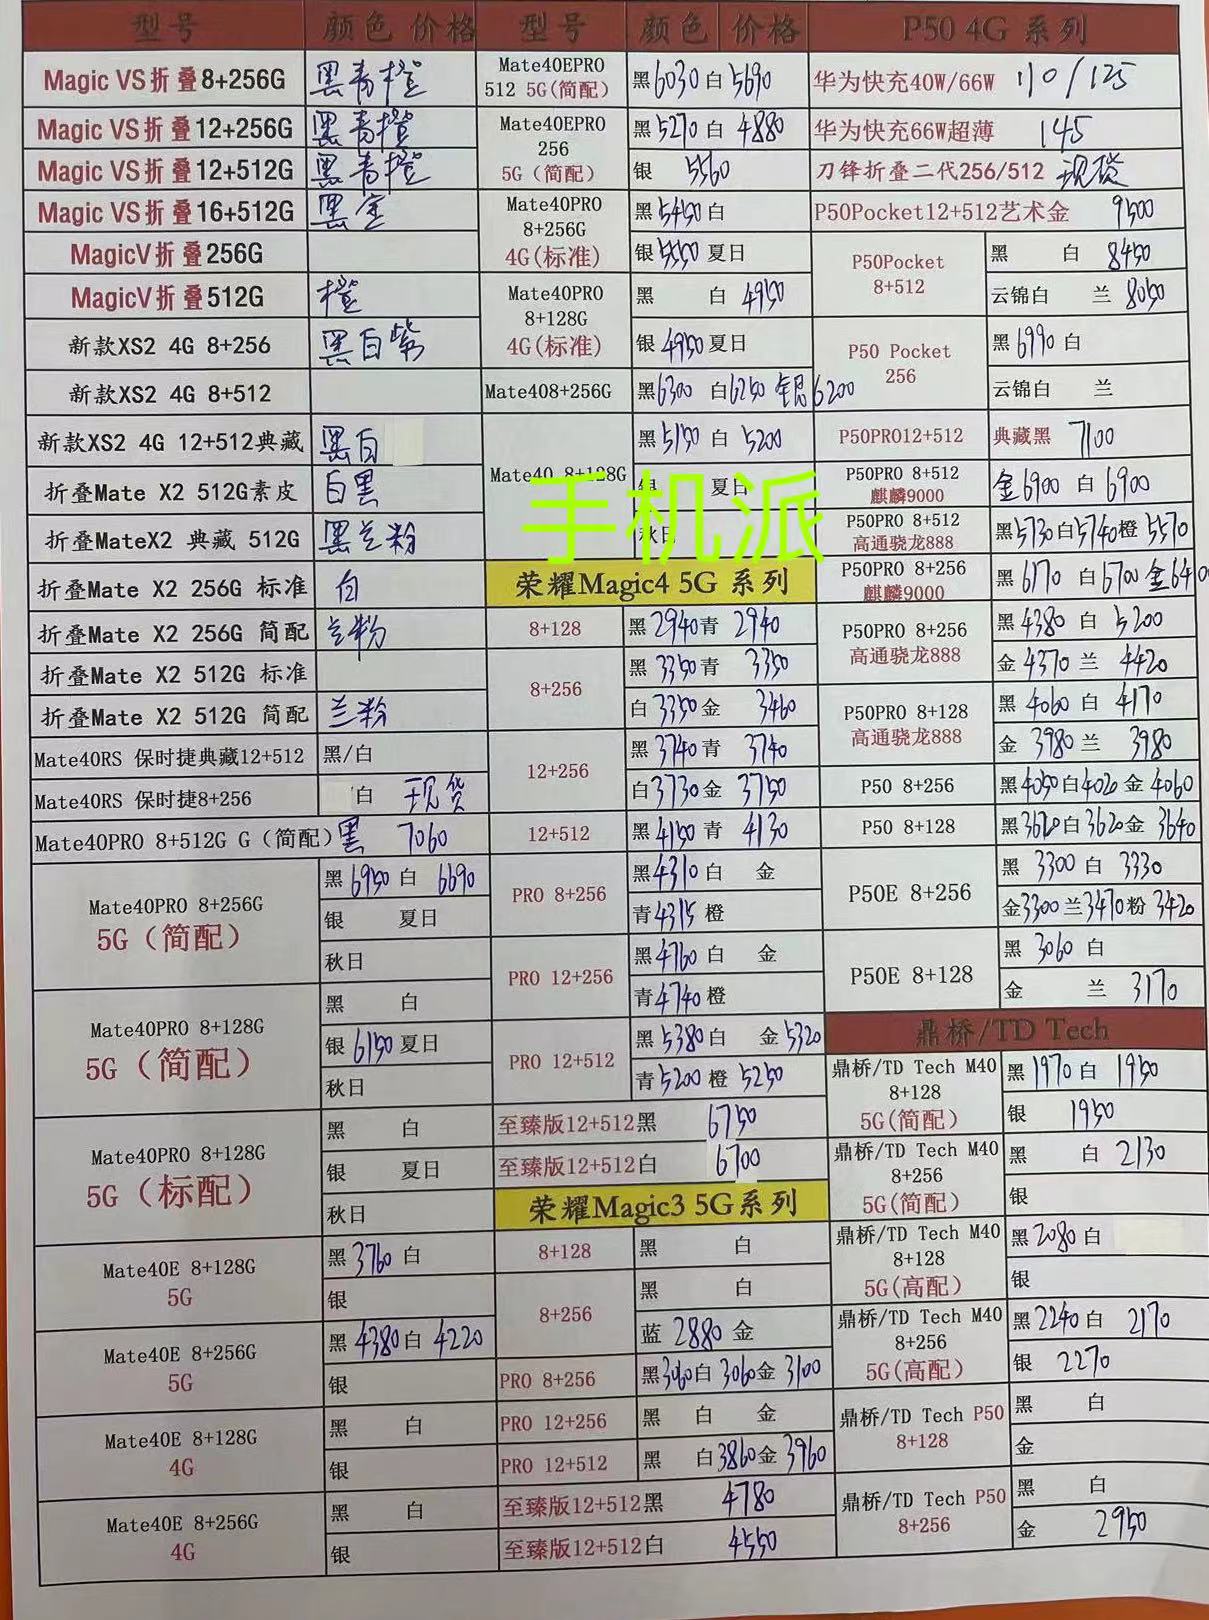 型号 颜色 价格
Magic VS折叠8+256G 黑青橙
Magic VS折叠12+256G 黑青橙
Magic VS折叠12+512G 黑青橙
Magic VS折叠16+512G 黑金
MagicV折叠256G
MagicV折叠512G 橙
新款XS2 4G 8+256 黑白紫
新款XS2 4G 8+512
新款XS2 4G 12+512典藏 黑白
折叠Mate X2 512G素皮 白黑
折叠MateX2 典藏 512G 黑兰粉
折叠Mate X2 256G 标准 白
折叠Mate X2 256G 简配 兰粉
折叠Mate X2 512G 标准
折叠Mate X2 512G 简配 兰粉
Mate40RS 保时捷典藏12+512 黑/白
Mate40RS 保时捷8+256 白 现货
Mate40PRO 8+512G G（简配） 黑 7060
Mate40PRO 8+256G
5G（简配）
黑6950 白 6690
银 夏日
秋日
Mate40PRO 8+128G
5G（简配）
黑 白
银6150夏日
秋日
Mate40PRO 8+128G
5G（标配）
黑 白
银 夏日
秋日
Mate40E 8+128G
5G
黑3760 白
银
Mate40E 8+256G
5G
黑4380白4220
银
Mate40E 8+128G
4G
黑 白
银
Mate40E 8+256G
4G
黑 白
银
型号 颜色 价格
Mate40EPRO
512 5G(简配)
黑6030白5690
Mate40EPRO
256
5G（简配）
黑5270白4880
银 5560
Mate40PRO
8+256G
4G(标准)
黑5450白
银5550夏日
Mate40PRO
8+128G
4G(标准)
黑 白4950
银4950夏日
Mate408+256G 黑6300 白6250 银6200
Mate40 8+128G
黑5150白5200
银 夏日
秋日
手机派
荣耀Magic4 5G 系列
8+128 黑2940青2940
8+256
黑3350青3350
白3350金3460
12+256
黑3740青3740
白3730金3750
12+512 黑4150青4130
PRO 8+256
黑4310白 金
青4315橙
PRO 12+256
黑4760白 金
青4740橙
PRO 12+512
黑5380白 金5320
青5200橙5250
至臻版12+512黑 6750
至臻版12+512白 6700
荣耀Magic3 5G系列
8+128 黑 白
8+256
黑 白
蓝2880金
PRO 8+256 黑3060白3060金3100
PRO 12+256 黑 白 金
PRO 12+512 黑 白3860金3960
至臻版12+512黑 4780
至臻版12+512白 4550
P50 4G 系列
华为快充40W/66W 110/125
华为快充66W超薄 145
刀锋折叠二代256/512 现货
P50Pocket12+512艺术金 9500
P50Pocket
8+512
黑 白 8450
云锦白 兰 8050
P50 Pocket
256
黑6990白
云锦白 兰
P50PRO12+512 典藏黑 7100
P50PRO 8+512
麒麟9000
金6900白6900
P50PRO 8+512
高通骁龙888
黑5730白5740橙5570
P50PRO 8+256
麒麟9000
黑6170白6700金6400
P50PRO 8+256
高通骁龙888
黑4380白5200
金4370兰4420
P50PRO 8+128
高通骁龙888
黑4060白4170
金3980兰3980
P50 8+256 黑4050白4020金4060
P50 8+128 黑3620白3620金3640
P50E 8+256
黑3300白3330
金3300兰3470粉3420
P50E 8+128
黑3060白
金 兰3170
鼎桥/TD Tech
鼎桥/TD Tech M40
8+128
5G(简配)
黑1970白1950
银 1950
鼎桥/TD Tech M40
8+256
5G(简配)
黑 白2130
银
鼎桥/TD Tech M40
8+128
5G(高配)
黑2080白
银
鼎桥/TD Tech M40
8+256
5G(高配)
黑2240白2170
银 2270
鼎桥/TD Tech P50
8+128
黑 白
金
鼎桥/TD Tech P50
8+256
黑 白
金 2950